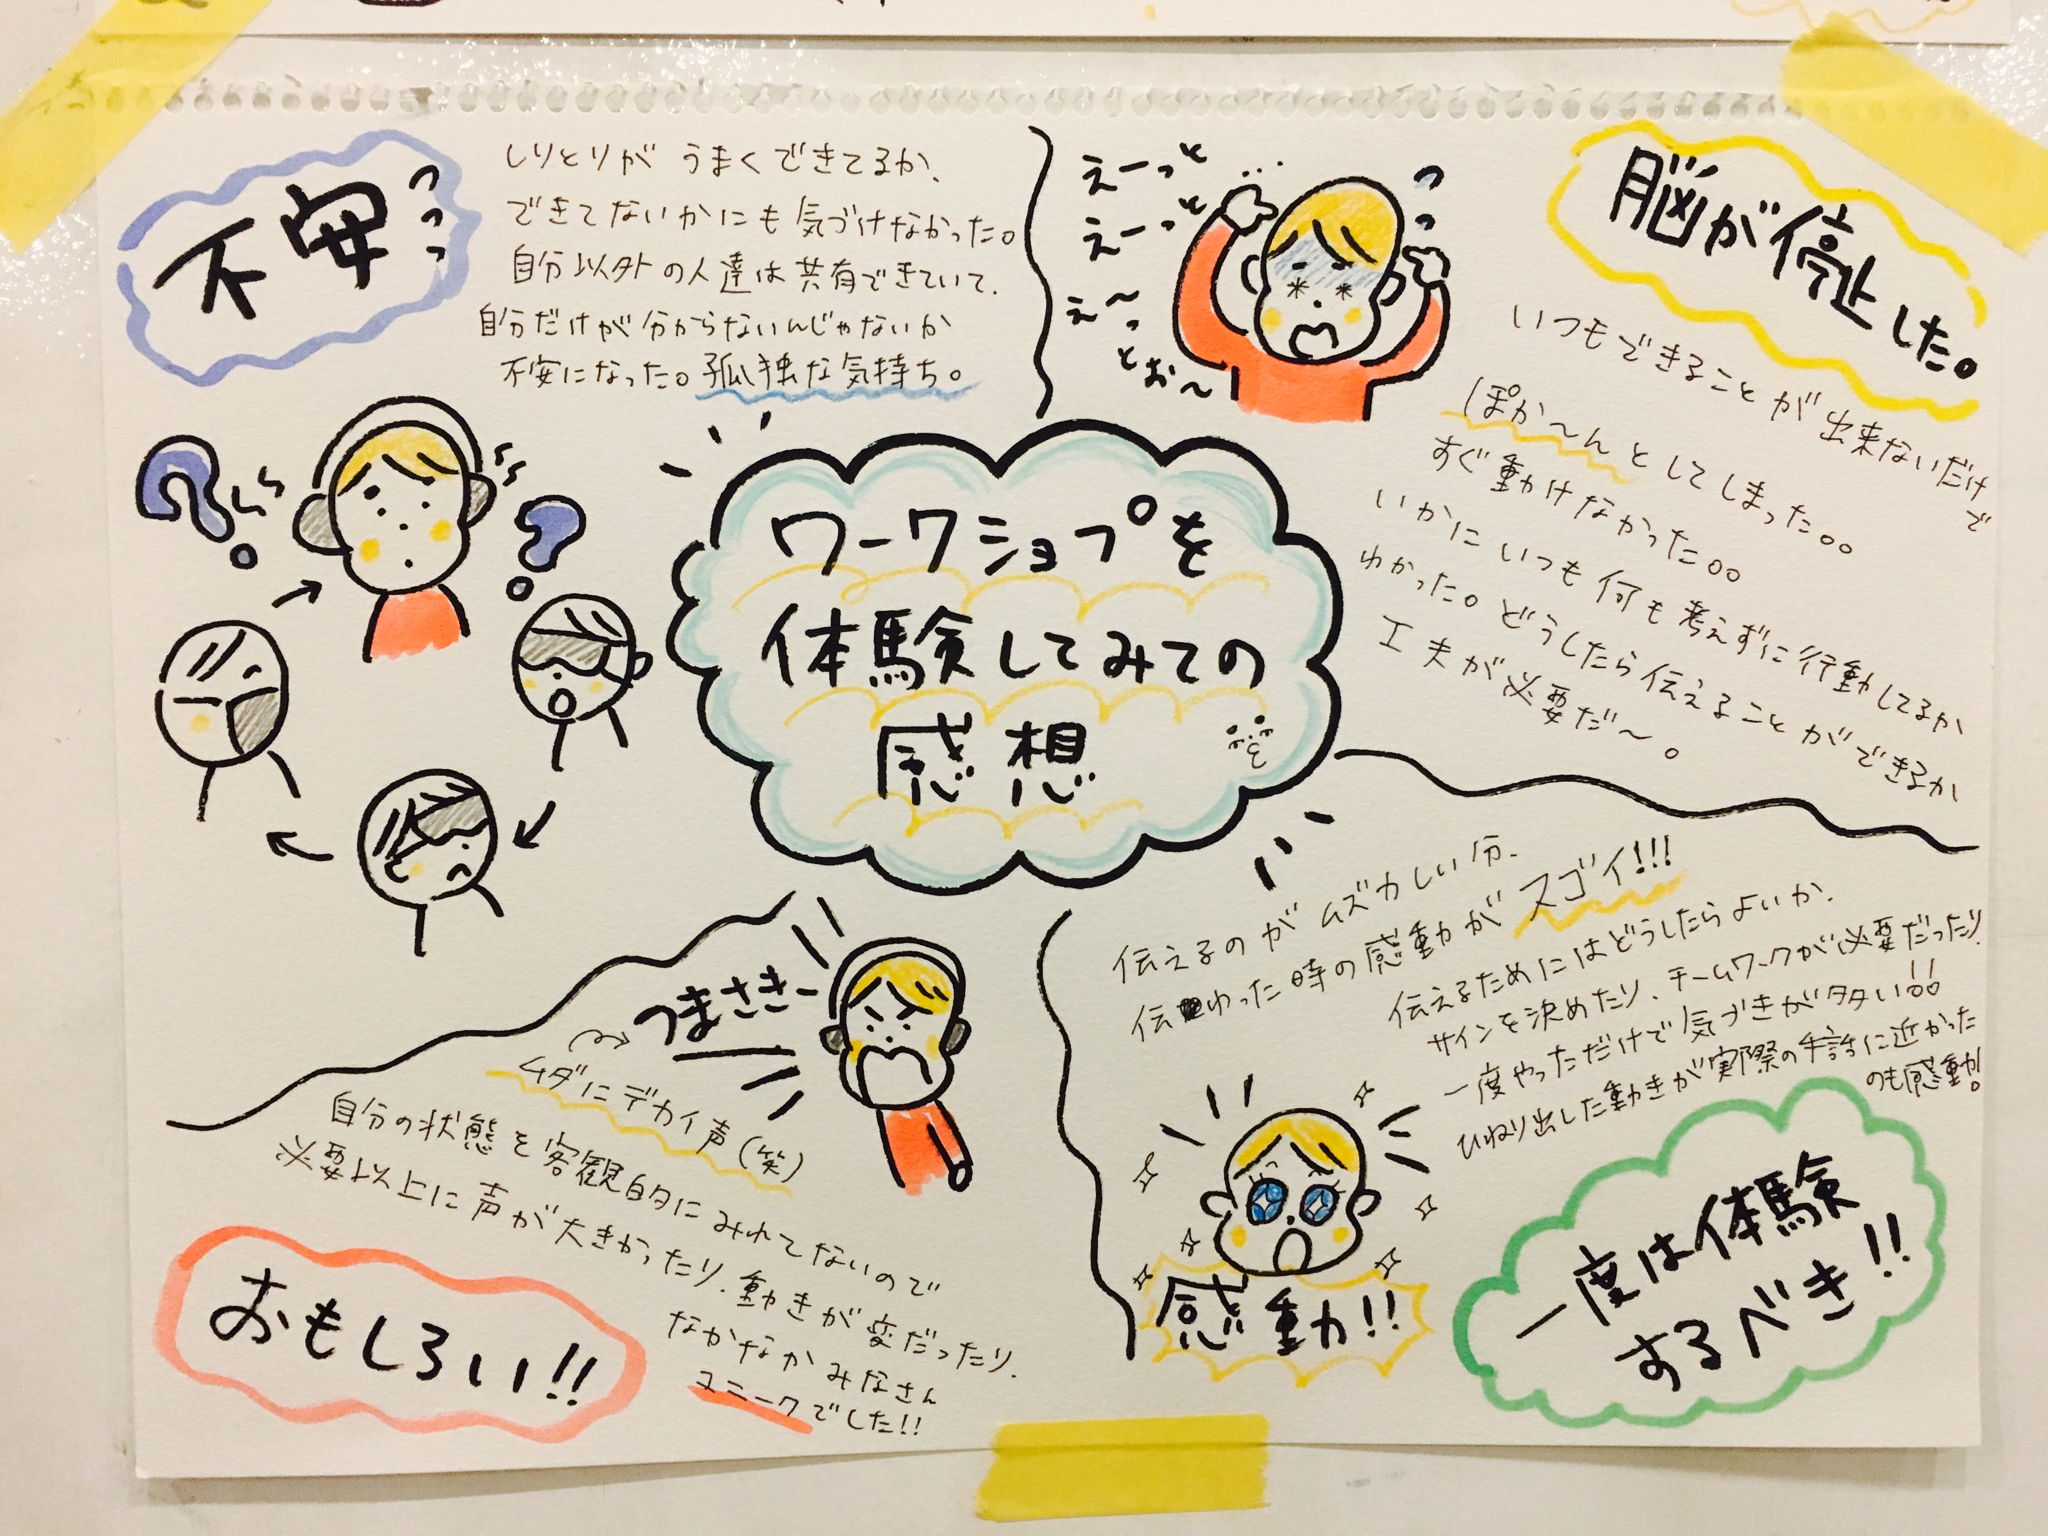 不安…
しりとりがうまくできてるか、
できてないかにも気づけなかった。
自分以外の人達は共有できていて、
自分だけが分からないんじゃないか
不安になった。孤独な気持ち。
えーっと…
えーっと
え〜っ
とお〜
脳が停止した。
いつもできることが出来ないだけで
ぽか〜んとしてしまった。。
すぐ動けなかった。。
いかにいつも何も考えずに行動してるか
わかった。どうしたら伝えることができるか
工夫が必要だ〜。
ワークショップを
体験してみての
感想
つまさきー
ムダにデカイ声(笑)
自分の状態を客観的にみれてないので
必要以上に声が大きかったり、動きが変だったり、
なかなかみなさん
ユニークでした!!
おもしろい!!
伝えるのがムズカしい分、
伝わった時の感動がスゴイ!!!
伝えるためにはどうしたらよいか、
サインを決めたり、チームワークが必要だったり、
一度やっただけで気づきが多い!!
ひねり出した動きが実際の手話に近かった
のも感動!
感動!!
一度は体験
するべき!!